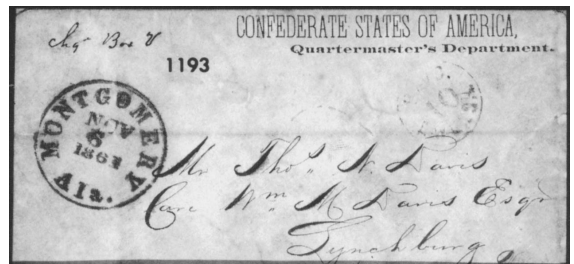 CONFEDERATE STATES OF AMERICA,
Quartermaster's Department.
Chg Box
1193
MONTGOMERY
NOV
6
1861
Ala.
10
Mr Thos. N. Davis
Care Wm M Davis Esqr
Lynchburg